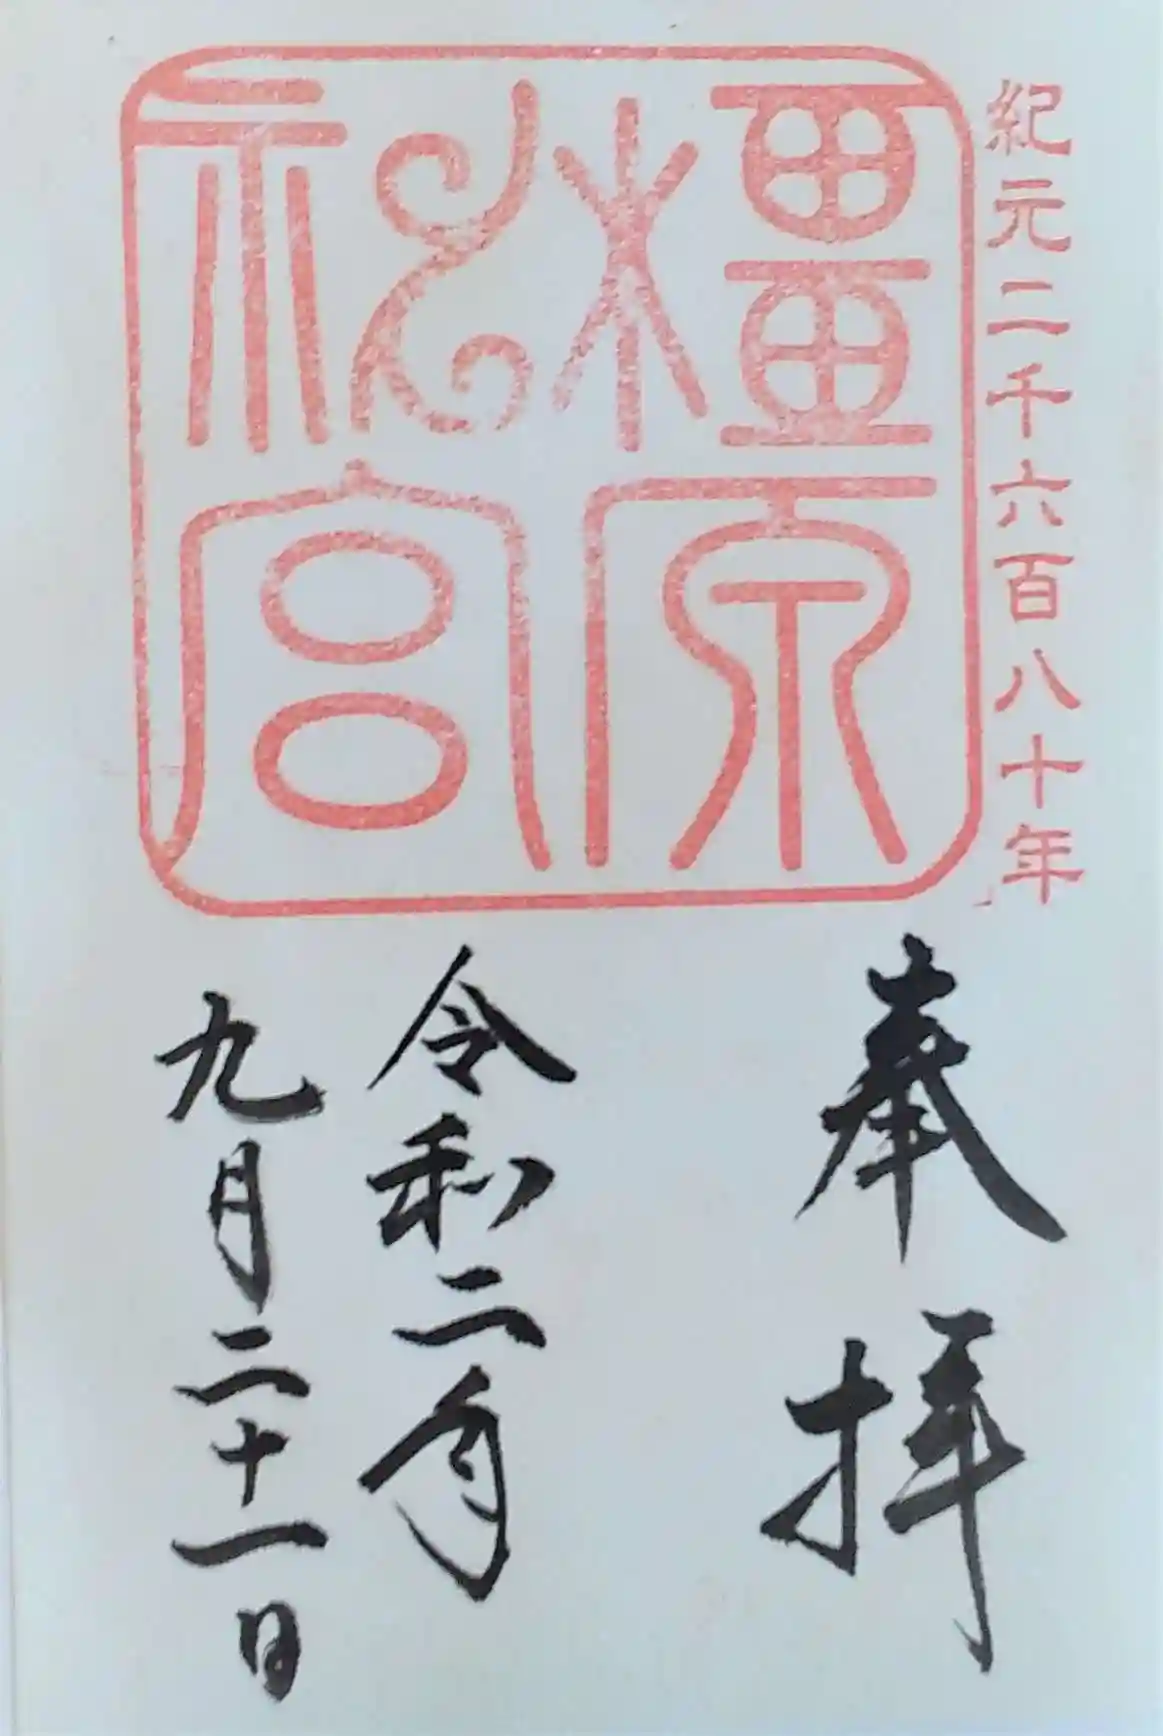 紀元二千六百八十年
橿原
神宮
奉拝
令和二年
九月二十一日